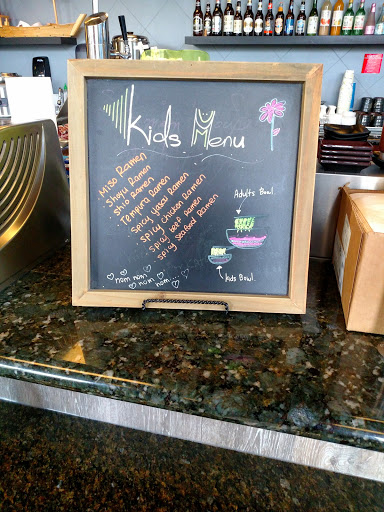 Kids Menu
Miso Ramen
Shoyu Ramen
Shio Ramen
Tempura Ramen
Spicy Yasai Ramen
Spicy Chicken Ramen
Spicy beef Ramen
Spicy Seafood Ramen
Adults Bowl.
kids Bowl.
nom nom
nom nom